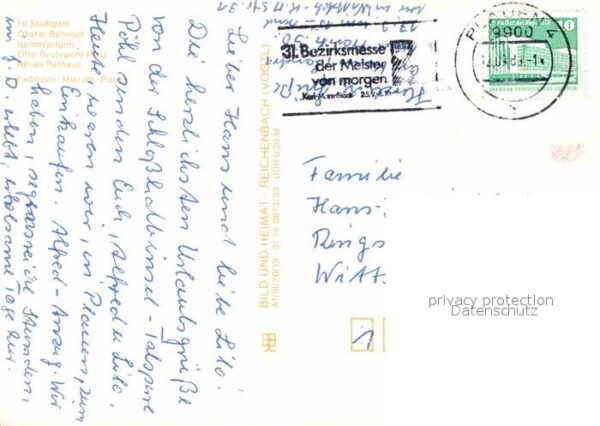 Im Stadtpark
Oberer Bahnhof
Kemmlerturm
Otto-Grotewohl-Platz
Neues Rathaus
Farbfotos: Menrath, Plauen
Lieber Hans und liebe Lilo!
Die herzlichsten Urlaubsgrüße
von der Schloßhalbinsel-Talsperre
Pöhl senden Euch, Alfred u. Lilo.
Heute waren wir, in Plauen, zum
Einkaufen. Alfred-Anzug. Wir
haben, segensreiche Stunden,
im J. D. erlebt, erholsame Tage
BILD UND HEIMAT · REICHENBACH (VOGTL)
A1/B6/26/13 01 14 0973/33 · DDR 0,20 M
31. Bezirksmesse
der Meister
von morgen
Karl-Marx-Stadt
PLAUEN 4
9900
10
DEUTSCHE DEMOKRATISCHE REPUBLIK
Familie
Hans
Rings
Witt.
1
privacy protection
Datenschutz